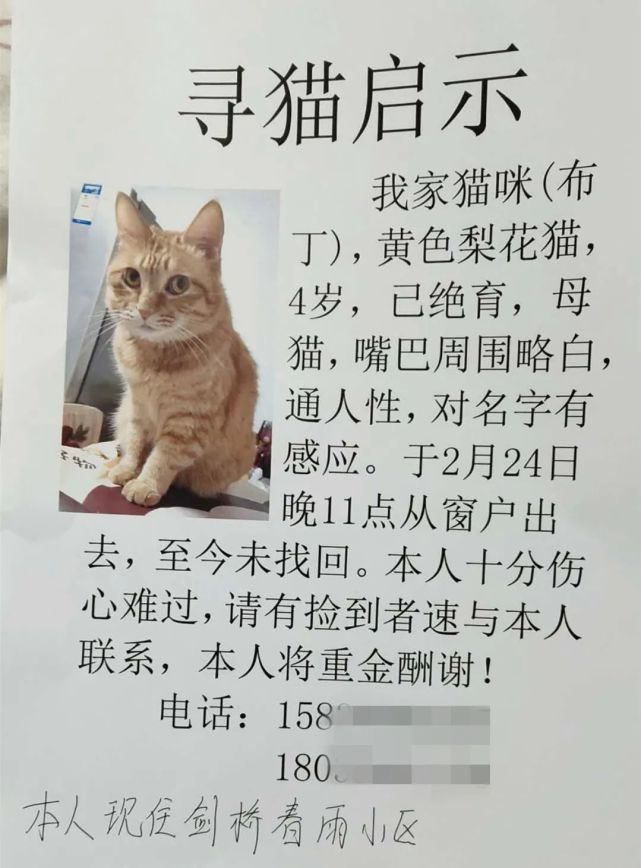 寻猫启示
我家猫咪(布
丁)，黄色梨花猫，
4岁，已绝育，母
猫，嘴巴周围略白，
通人性，对名字有
感应。于2月24日
晚11点从窗户出
去，至今未找回。本人十分伤
心难过，请有捡到者速与本人
联系，本人将重金酬谢！
电话：158
180
本人现住剑桥春雨小区